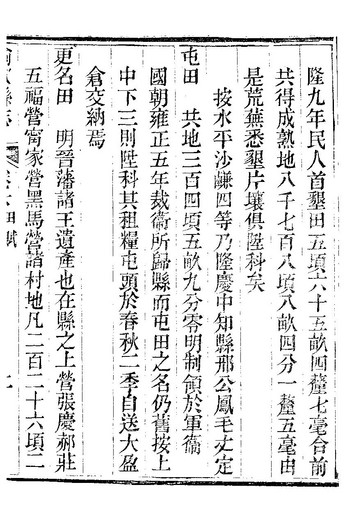 隆九年民人首墾田五頃六十五畝四釐七毫合前
共得成熟地八千七百八頃八畝四分一釐五毫由
是荒蕪悉墾片壤俱陞科矣
按水平沙鹻四等乃隆慶中知縣那公鳳毛丈定
屯田　共地三百四頃五畝九分零明制領於軍衞
國朝雍正五年裁衞所歸縣而屯田之名仍舊按上
中下三則陞科其租糧屯頭於春秋二季自送大盈
倉交納焉
更名田　明晉藩諸王遺產也在縣之上營張慶郝莊
五福營甯家營黑馬營諸村地凡二百二十六頃二
田賦